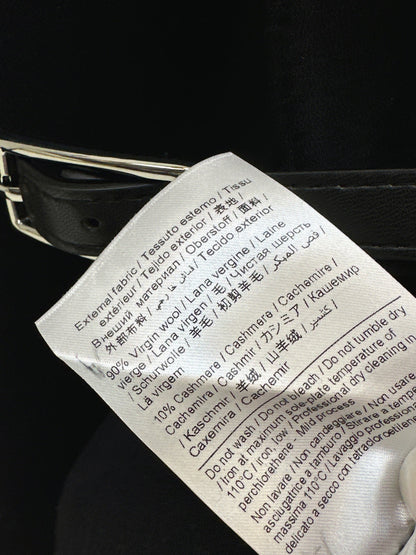 External fabric / Tessuto esterno / Tissu
extérieur / Tejido exterior / 表地 /
Внешний материал / Oberstoff / 面料 /
外部布料 / قماش خارجي / Tecido exterior
90% Virgin wool / Lana vergine / Laine
vierge / Lana virgen / 毛 / Чистая шерсть
/ Schurwolle / 羊毛 / 初剪羊毛 / صوف بكر /
Lã virgem
10% Cashmere / Cashmere / Cachemire /
Cachemira / Cashmir / カシミア / Кашемир
/ Kaschmir / 羊绒 / 山羊绒 / كشمير /
Caxemira / Cachemir
Do not wash / Do not bleach / Do not tumble dry
/ Iron at maximum sole-plate temperature of
110°C / Iron, low / Professional dry cleaning in
perchlorethene - Mild process
Non lavare / Non candeggiare / Non usare
asciugatrice a tamburo / Stirare a temperatura
massima 110°C / Lavaggio professionale
delicato a secco con tetracloroetilene